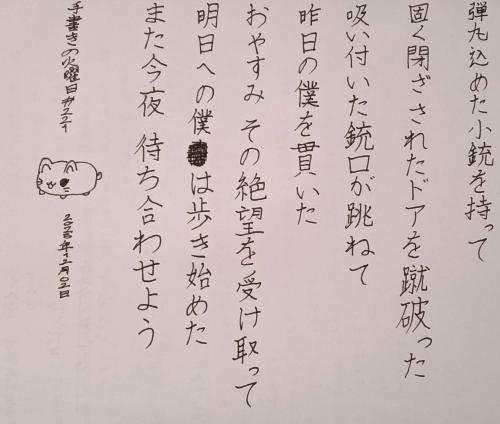 弾丸込めた小銃を持って
固く閉ざされたドアを蹴破った
吸い付いた銃口が跳ねて
昨日の僕を貫いた
おやすみ その絶望を受け取って
明日への僕は歩き始めた
また今夜 待ち合わせよう
手書きの火曜日